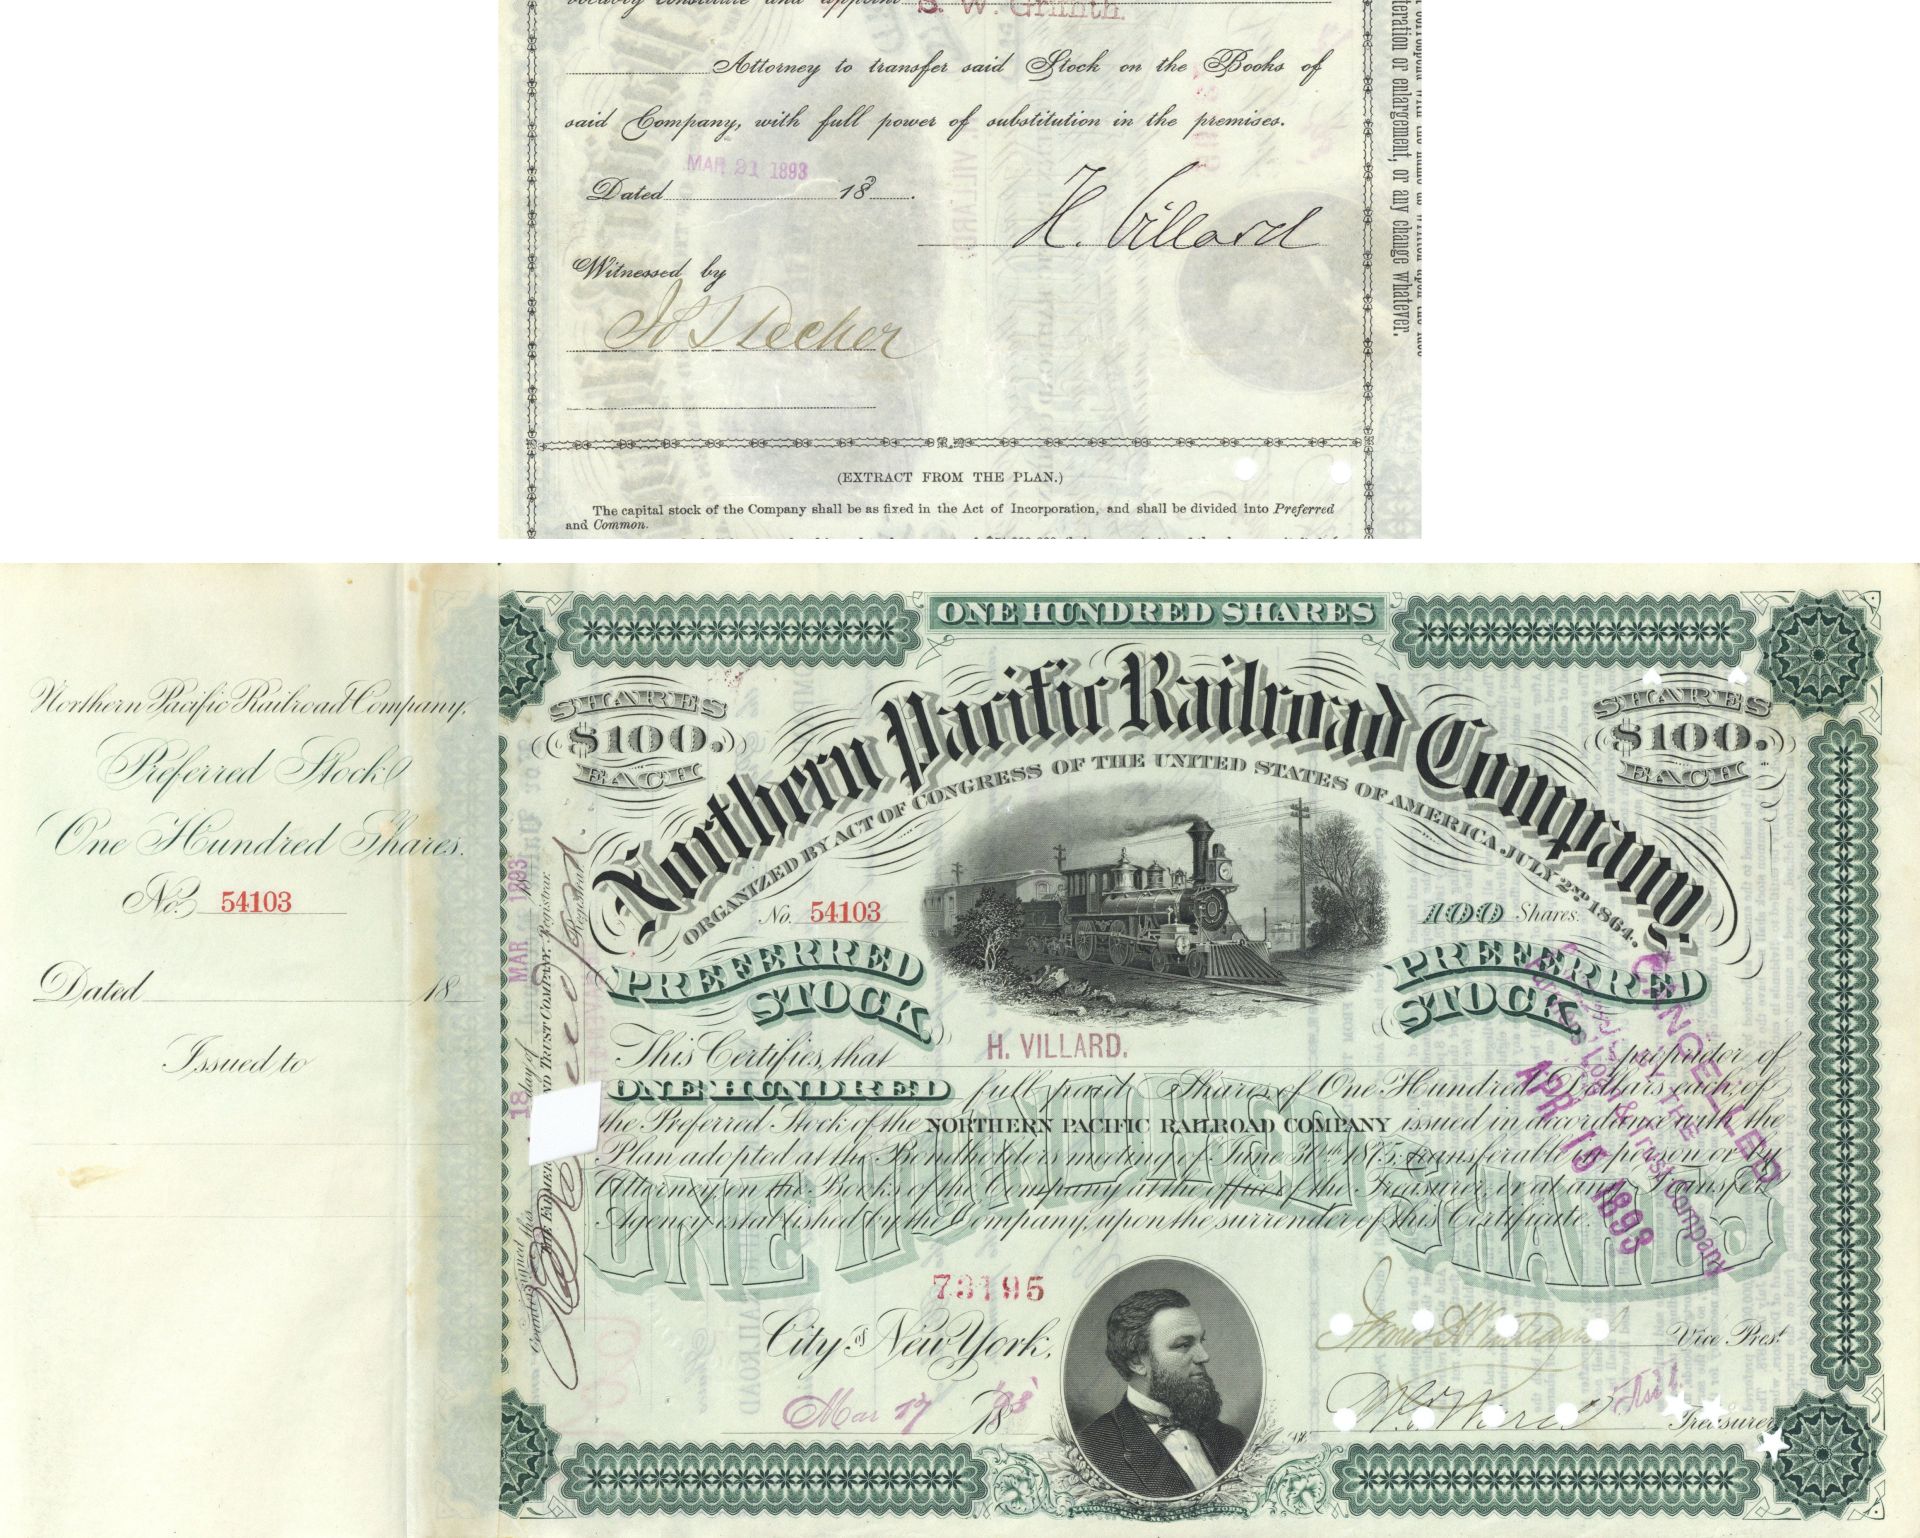 S. W. Griffith.
Attorney to transfer said Stock on the Books of
said Company, with full power of substitution in the premises.
MAR 21 1893
Dated 18 .
H. Villard
Witnessed by
(EXTRACT FROM THE PLAN.)
The capital stock of the Company shall be as fixed in the Act of Incorporation, and shall be divided into Preferred
and Common.
teration or enlargement, or any change whatever.
Northern Pacific Railroad Company,
Preferred Stock
One Hundred Shares.
No. 54103
Dated 18
Issued to
ONE HUNDRED SHARES
SHARES
$100.
EACH
SHARES
$100.
EACH
Northern Pacific Railroad Company.
ORGANIZED BY ACT OF CONGRESS OF THE UNITED STATES OF AMERICA JULY 2ND 1864.
No. 54103
100 Shares.
PREFERRED
STOCK
PREFERRED
STOCK
This Certifies, that H. VILLARD. proprietor of
ONE HUNDRED full paid Shares of One Hundred Dollars each, of
the Preferred Stock of the NORTHERN PACIFIC RAILROAD COMPANY issued in accordance with the
Plan adopted at the Bondholders meeting of June 30th 1875, transferable in person or by
Attorney, on the Books of the Company at the office of the Treasurer, or at any Transfer
Agency established by the Company, upon the surrender of this Certificate.
ONE HUNDRED SHARES
CANCELLED
APR 15 1893
Countersigned this 18 day of MAR 1893
Registrar.
73195
City of New York,
Mar 17 1893
Vice Prest.
Treasurer